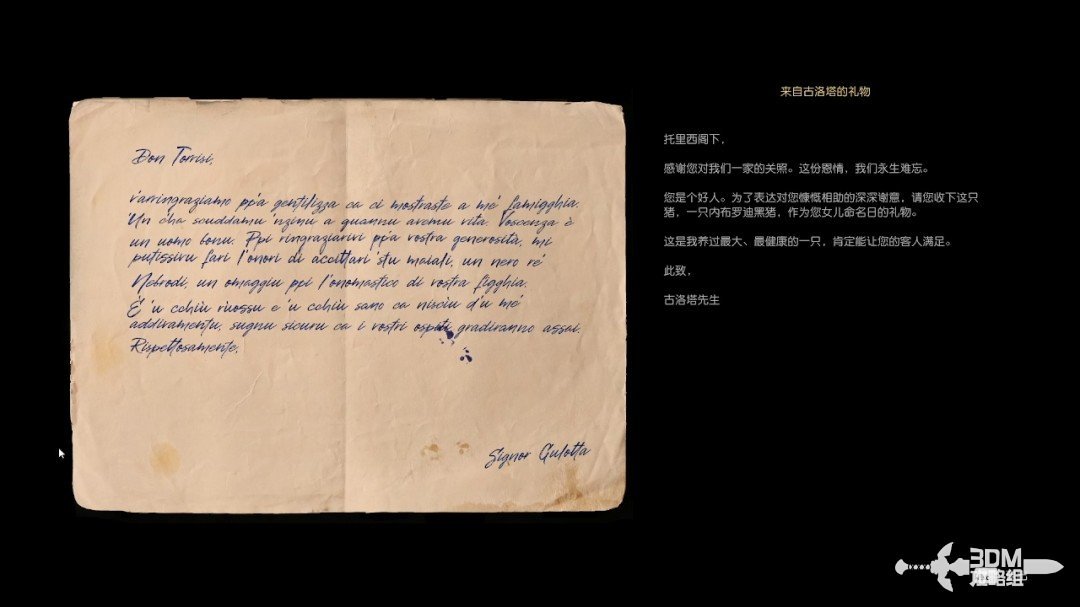 Don Torrisi,
v'arringraziamo pp'a gentilizza ca ci mostraste a mé famigghia.
'Un cha scuddamu 'nzinu a quannu avemu vita. Voscenza è
un uomo bonu. Ppi ringraziarivi pp'a vostra generosità, mi
putissivu fari l'onori di accittari 'stu maiali, un nero ré
Nebrodi, un omaggiu ppi l'onomastico di vostra figghia.
È 'u cchiù ruossu e 'u cchiù sano ca nisciu d'u mé
addivamentu, sugnu sicuru ca i vostri ospiti gradiranno assai.
Rispettosamente,
Signor Gulotta
来自古洛塔的礼物
托里西阁下，
感谢您对我们一家的关照。这份恩情，我们永生难忘。
您是个好人。为了表达对您慷慨相助的深深谢意，请您收下这只
猪，一只内布罗迪黑猪，作为您女儿命名日的礼物。
这是我养过最大、最健康的一只，肯定能让您的客人满足。
此致，
古洛塔先生
3DM
攻略组